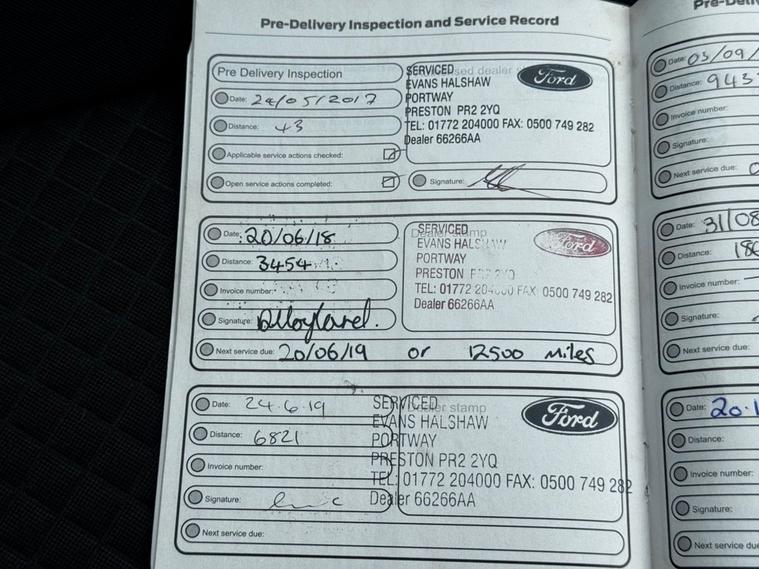 Pre-Delivery Inspection and Service Record
Pre Delivery Inspection
Date: 24/05/2017
Distance: 43
Applicable service actions checked:
Open service actions completed:
SERVICED
EVANS HALSHAW
PORTWAY
PRESTON PR2 2YQ
TEL: 01772 204000 FAX: 0500 749 282
Dealer 66266AA
Ford
Signature:
Date: 20/06/18
Distance: 3454
Invoice number:
Signature:
Next service due: 20/06/19 or 12500 Miles
Dealer stamp
SERVICED
EVANS HALSHAW
PORTWAY
PRESTON PR2 2YQ
TEL: 01772 204000 FAX 0500 749 282
Dealer 66266AA
Ford
Date: 24.6.19
Distance: 6821
Invoice number:
Signature:
Next service due:
Dealer stamp
SERVICED
EVANS HALSHAW
PORTWAY
PRESTON PR2 2YQ
TEL: 01772 204000 FAX: 0500 749 282
Dealer 66266AA
Ford
Date: 03/09/
Distance: 943
Invoice number:
Signature:
Next service due:
Date: 31/08
Distance: 18
Invoice number:
Signature:
Next service due:
Date: 20.1
Distance:
Invoice number:
Signature:
Next service due